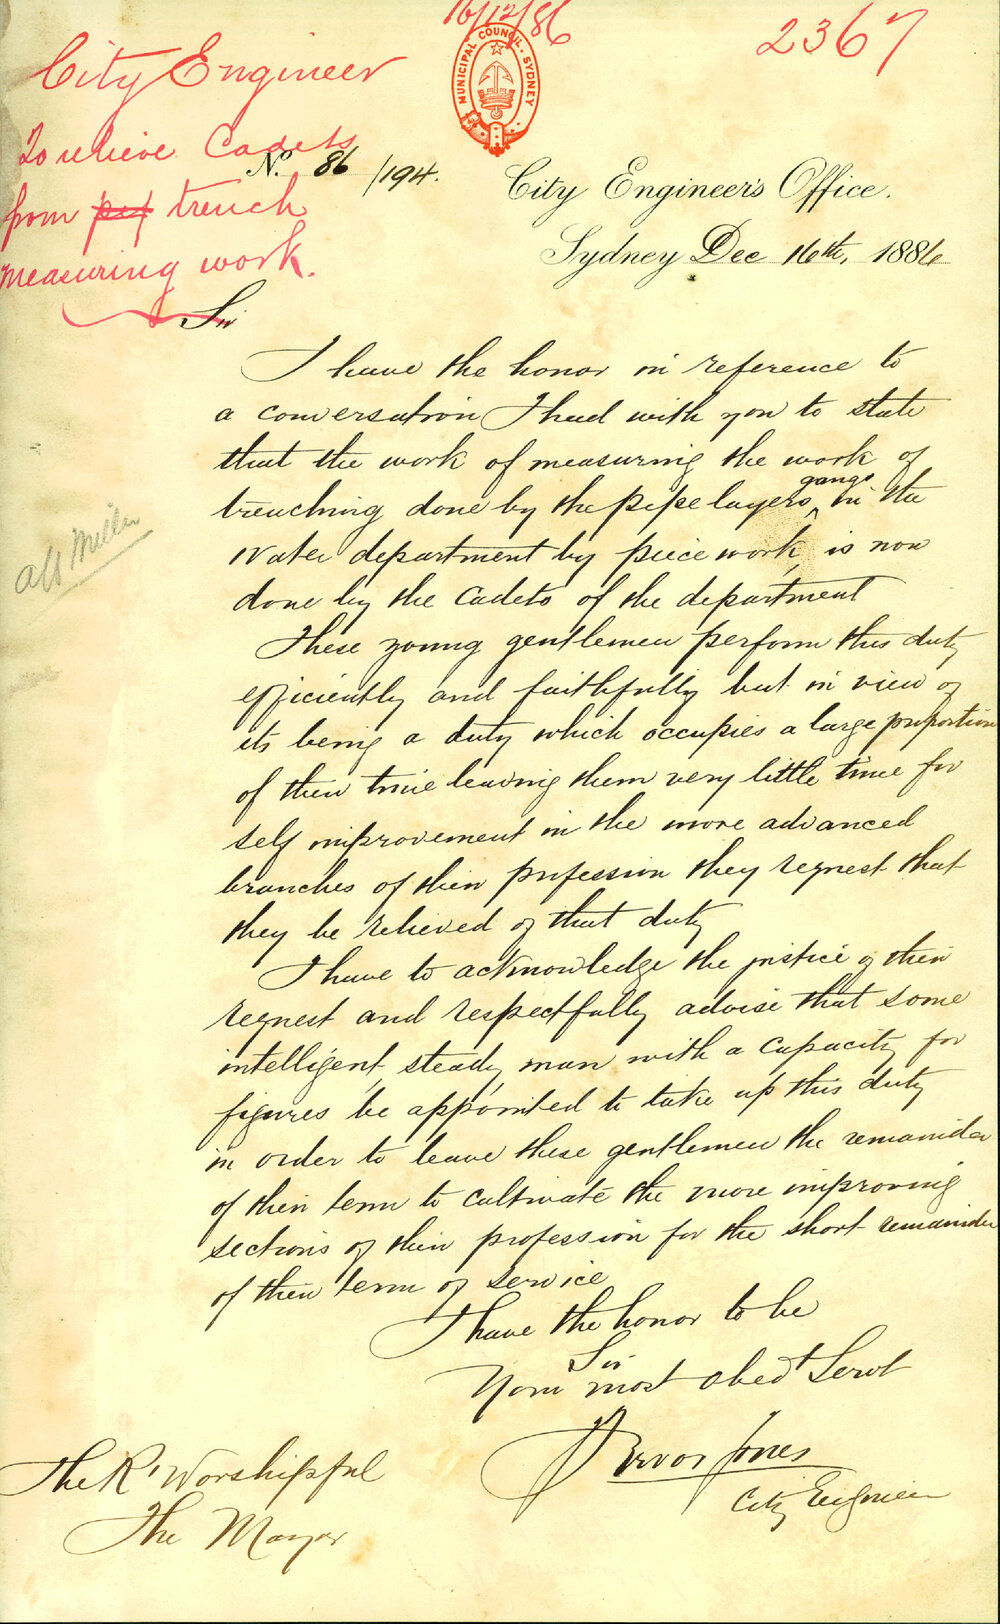 16/12/86
2367
MUNICIPAL COUNCIL. SYDNEY
City Engineer
To relieve Cadets
from trench
measuring work.
No. 86/194.
City Engineer's Office.
Sydney Dec 16th, 1886
Sir
I have the honor in reference to
a conversation I had with you to state
that the work of measuring the work of
trenching done by the pipe layers gangs in the
Water department by piece work, is now
done by the Cadets of the department
These young gentlemen perform this duty
efficiently and faithfully but in view of
its being a duty which occupies a large proportion
of their time leaving them very little time for
self improvement in the more advanced
branches of their profession they request that
they be relieved of that duty
I have to acknowledge the justice of their
request and respectfully advise that some
intelligent, steady, man with a capacity for
figures be appointed to take up this duty
in order to leave these gentlemen the remainder
of their term to cultivate the more improving
sections of their profession for the short remainder
of their term of service
I have the honor to be
Sir
Your most obedt Servt
Trevor Jones
City Engineer
The Rt Worshipful
The Mayor
Miller